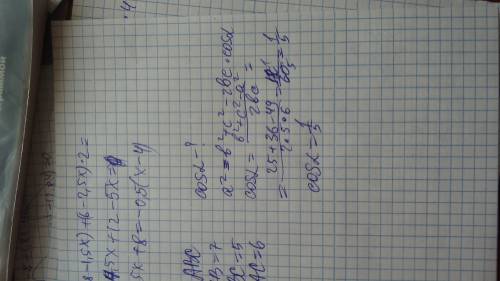 8-1,5x)+(6-2,5x)·2=
4,5x+12-5x=0
5x+8=-0,5(x-4)
ABC
B=7
BC=5
AC=6
cosα-?
a²=b²+c²-2bc·cosα
cosα= b²+c²-a² / 2bc =
= 25+36-49 / 2·5·6 = 12 / 60 = 1/5
cosα=1/5